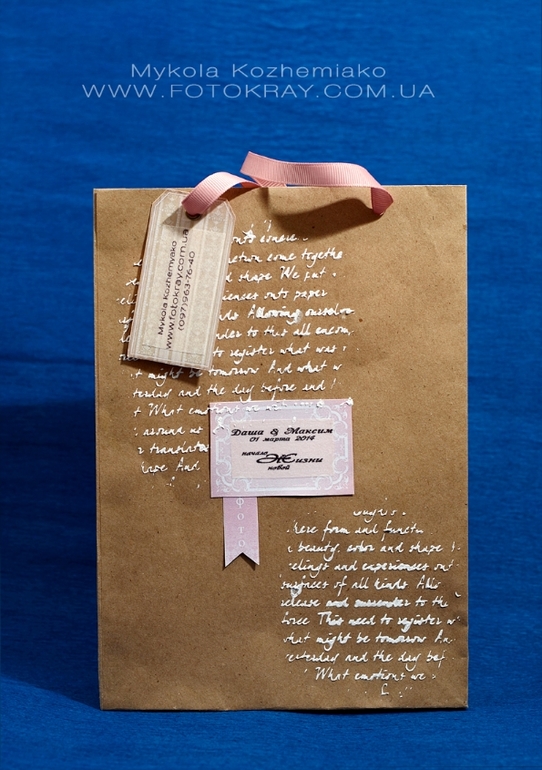 Mykola Kozhemiako
WWW.FOTOKRAY.COM.UA
Mykola Kozhemyako
www.fotokray.com.ua
(097)963-76-40
onto
come togethe
d shape We put
iences onto paper
nds Allowing ourselve
nder to this all encom
to register what was
t might be tomorrow And what w
terday and the day before and
t What emotions we
around us
r translated
here And
Даша & Максим
01 марта 2014
начало Жизни
новой
ФОТО
here form and functi
beauty, color and shape
eelings and experiences ont
surfaces of all kinds Allo
release and surrender to the
force This need to register w
what might be tomorrow An
esterday and the day bef
What emotions we